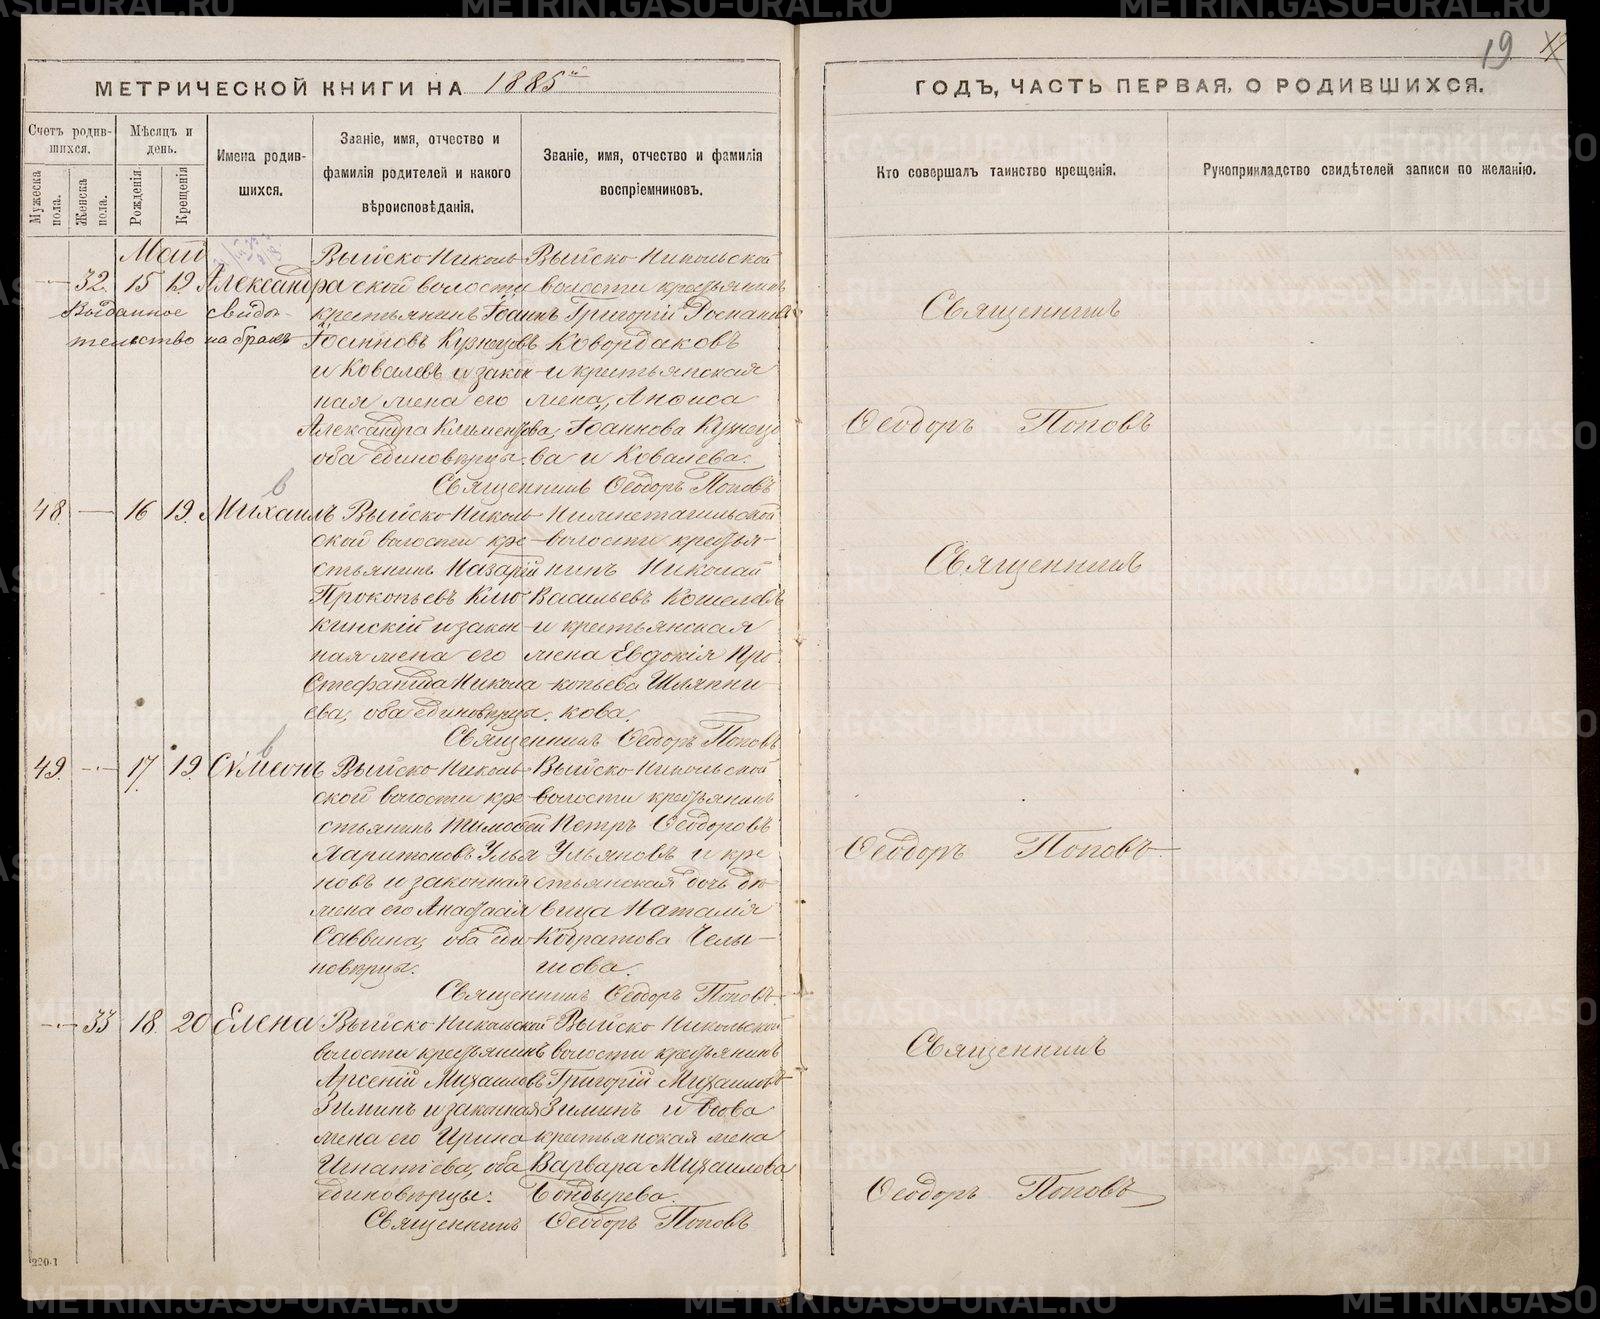 19
МЕТРИЧЕСКОЙ КНИГИ НА 1885й
ГОДЪ, ЧАСТЬ ПЕРВАЯ, О РОДИВШИХСЯ.
Счетъ родив-
шихся.
Мужеска
пола.
Женска
пола.
Мѣсяцъ и
день.
Рожденія.
Крещенія
Имена родив-
шихся.
Званіе, имя, отчество и
фамилія родителей и какого
вѣроисповѣданія.
Званіе, имя, отчество и фамилія
воспріемниковъ.
Кто совершалъ таинство крещенія.
Рукоприкладство свидѣтелей записи по желанію.
Май
32. 15 19. Александра
Выданное свидѣ-
тельство на бракъ
Выйско-Николь-
ской волости
крестьянинъ Іоаннъ
Іоанновъ Кузнецовъ
и Ковалевъ и закон-
ная жена его
Александра Климентова,
оба единовѣрцы.
Выйско-Никольской
волости крестьянинъ
Григорій
Ковордаковъ
и крестьянская
жена, Анѳиса
Іоаннова Кузнецо-
ва и Ковалева.
Священникъ Ѳеодоръ Поповъ
Священникъ
Ѳеодоръ Поповъ
48. 16 19. Михаилъ
Выйско-Николь-
ской волости кре-
стьянинъ Назарій
Прокопьевъ Клю-
кинскій и закон-
ная жена его
Стефанида Никола-
ева, оба единовѣрцы.
Нижнетагильской
волости крестья-
нинъ Николай
Васильевъ Кошелевъ
и крестьянская
жена Евдокія Про-
копьева Шляпни-
кова.
Священникъ Ѳеодоръ Поповъ
Священникъ
49. 17. 19. Сѵмеонъ
Выйско-Николь-
ской волости кре-
стьянинъ Тимоѳей
Харитоновъ Улья-
новъ и законная
жена его Анастасія
Саввина, оба еди-
новѣрцы.
Выйско-Никольской
волости крестьянинъ
Петръ Ѳеодоровъ
Ульяновъ и кре-
стьянская дочь дѣ-
вица Наталія
Кодратова Челы-
шова.
Священникъ Ѳеодоръ Поповъ.
Ѳеодоръ Поповъ
33 18. 20 Елена
Выйско-Никольской
волости крестьянинъ
Арсеній Михаиловъ
Зиминъ и законная
жена его Ирина
Игнатіева, оба
единовѣрцы.
Выйско-Никольской
волости крестьянинъ
Григорій Михаиловъ
Зиминъ и вдова
крестьянская жена
Варвара Михаилова
Бондырева.
Священникъ Ѳеодоръ Поповъ
Священникъ
Ѳеодоръ Поповъ
220-1
METRIKI.GASO-URAL.RU